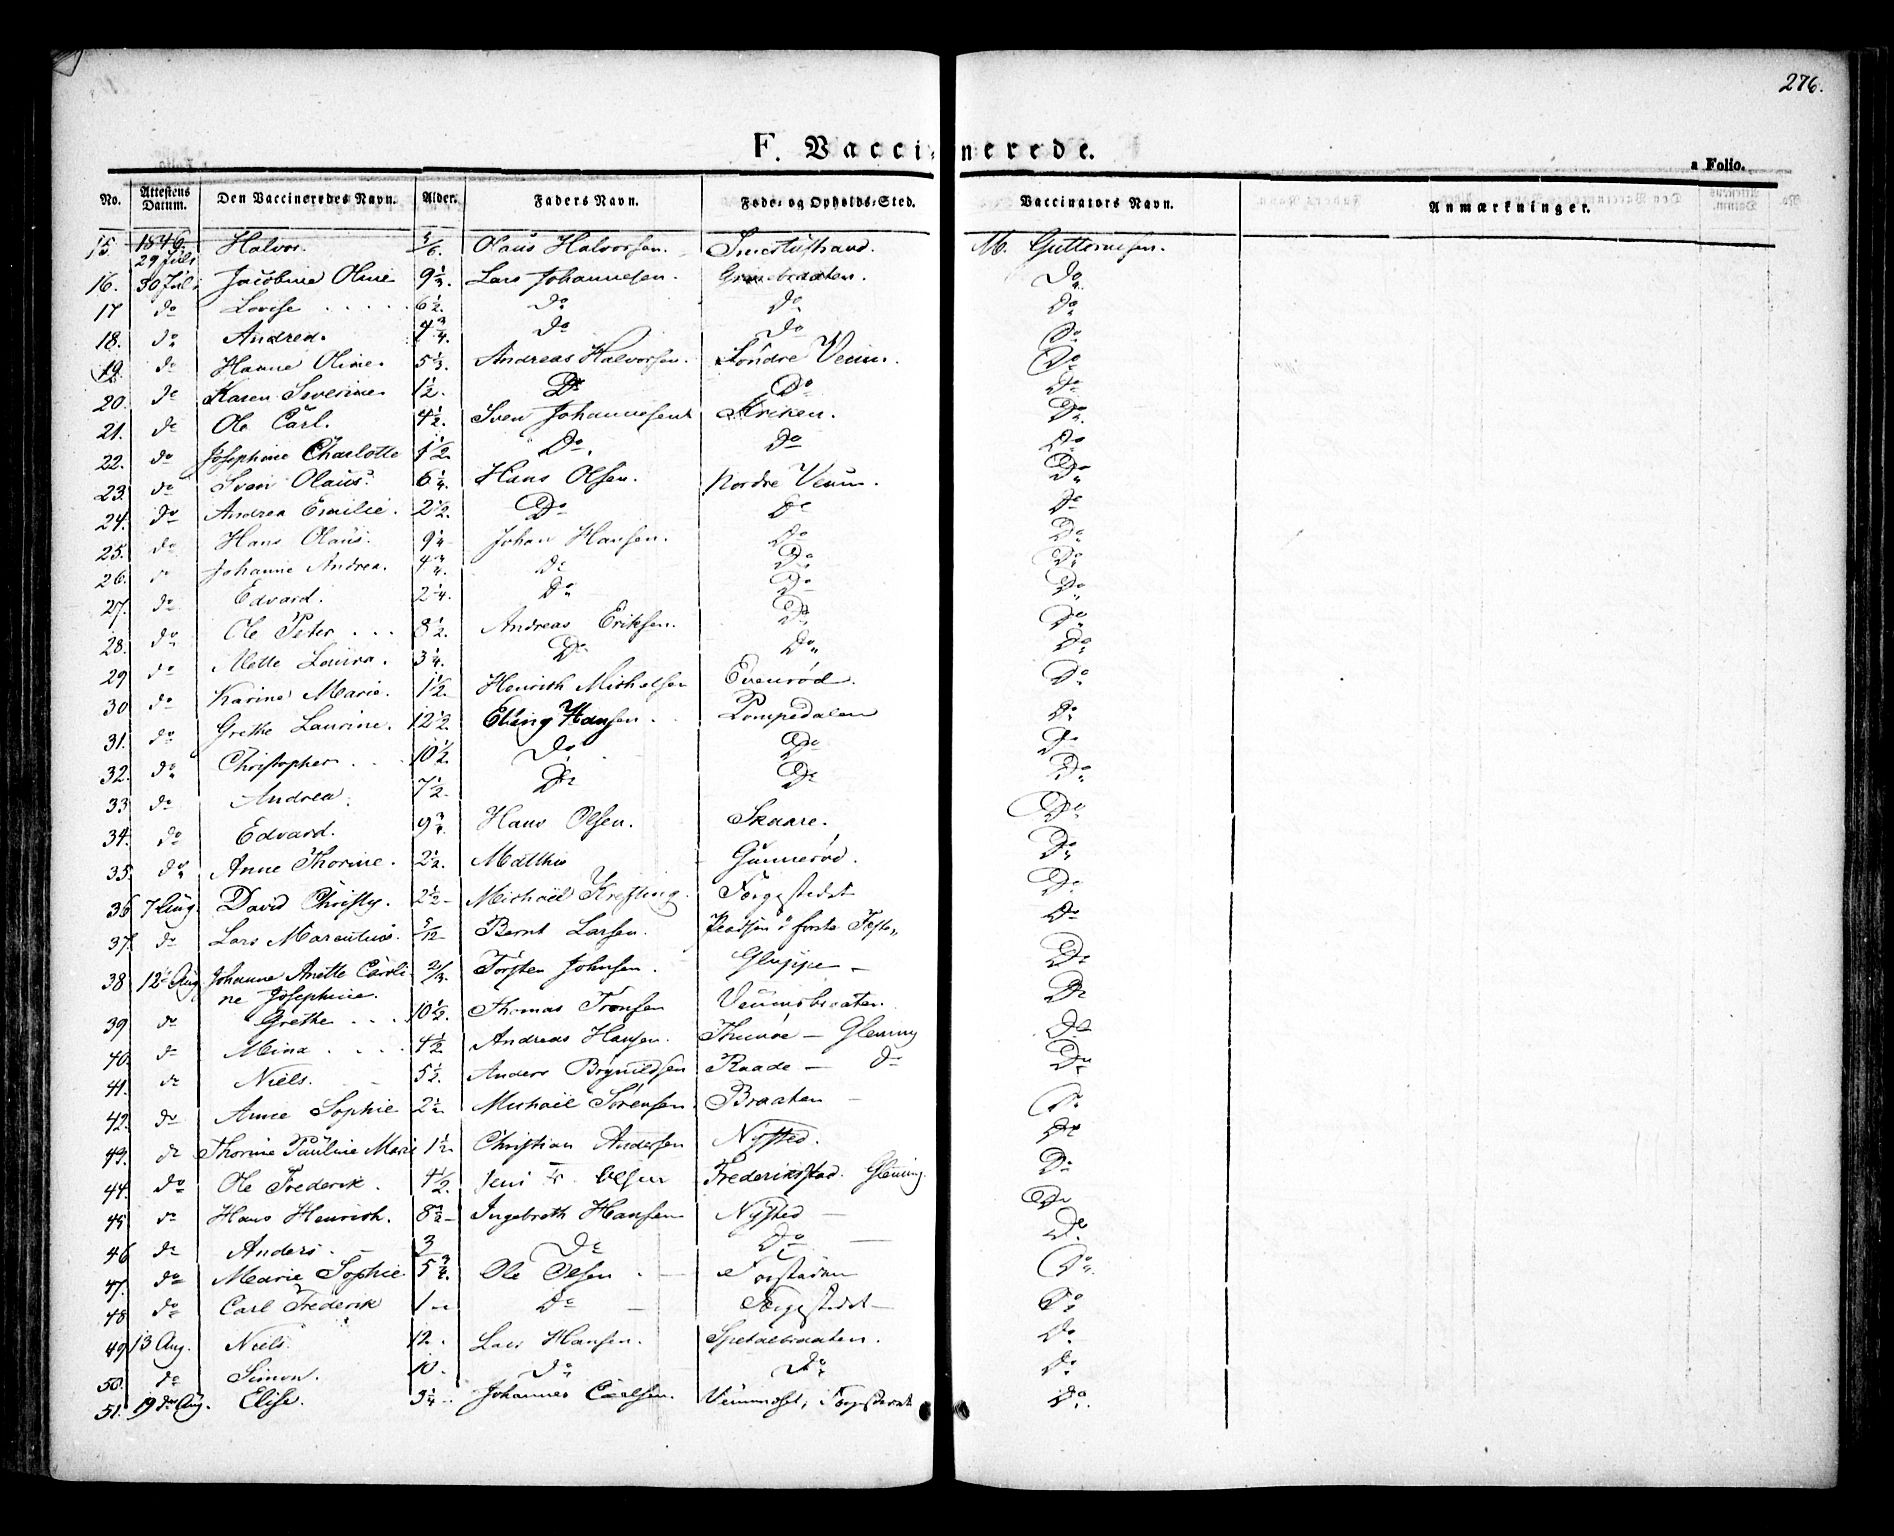 276.
F. Vaccinerede.
a Folio.
No. Attestens Datum. Den Vaccineredes Navn. Alder. Faders Navn. Føde- og Opholds-Sted. Vaccinators Navn. Anmærkninger.
1846.
15. 29 Juli Halvor. 5/6. Olaus Halvorsen. M. Guttormsen.
16. 30 Juli Jacobine Oline 9 1/3. Lars Johannesen. Do
17 do Lovise 6 1/2. Do Do Do
18. do Andrea. 4 3/4. Do Do Do
19. do Hanne Oline. 5 1/3. Andreas Halvorsen. Søndre Veum. Do
20. do Karen Severine 1 1/2. Do Do Do
21. do Ole Carl. 4 1/2. Sven Johannesen Kriken. Do
22. do Josephine Charlotte 1 1/2 Do Do Do
23. do Sven Olaus. 6 1/4. Hans Olsen. Nordre Veum. Do
24. do Andrea Emilie. 2 1/2. Do Do Do
25. do Hans Olaus. 9 1/4 Johan Hansen. Do Do
26. do Johanne Andrea. 4 3/4. Do Do Do
27. do Edvard. 2 1/4. Do Do Do
28. do Ole Peter 8 1/2. Andreas Eriksen. Do Do
29 do Mette Lovisa. 3 1/4. Do Do Do
30 do Karine Marie. 1 1/2. Henrich Michelsen Evenrød. Do
31. do Grethe Laurine. 12 1/2. Elling Hansen. Pompedalen Do
32. do Christopher 10 1/2. Do Do Do
33 do Andrea. 7 1/2. Do Do Do
34. do Edvard. 9 3/4. Hans Olsen. Skaare. Do
35. do Anne Thorine. 2 1/2. Matthis Gunnerød. Do
36 7 Aug. David Christly. 2 1/2 Michael Krefting. Torgestedet Do
37. do Lars Marentius. 5/12 Bernt Larsen. Do
38 12 Aug. Johanne Anette Caroli- 2/3. Torsten Johnsen. Gluppe Do
ne Josephine.
39 do Grethe 10 1/2. Thomas Tronsen Veumsbraaten. Do
40. do Mina 4 1/2 Andreas Hansen. Glemmig Do
41. do Niels. 5 1/2. Anders Brynildsen Raade — do Do
42. do Anne Sophie 2 1/2 Michael Sørensen. Braaten Do
43. do Thorine Pauline Marie 1 1/2 Christian Andersen Nysted. Do
44. do Ole Frederik. 4 1/2. Jens Fr. Olsen Frederikstad. Glemmig. Do
45 do Hans Henrich. 8 1/2 Ingebreth Hansen Nysted Do
46 do Anders. 3 Do Do Do
47. do Marie Sophie 5 3/4. Ole Olsen. Forstaden Do
48 do Carl Frederik 1 Do Torgestedet Do
49 13 Aug. Niels. 12. Lars Hansen. Spetalbraaten. Do
50. do Simon. 10. Do Do Do
51. 19 do Aug. Elise. 3 1/4. Johannes Carlsen. Do.